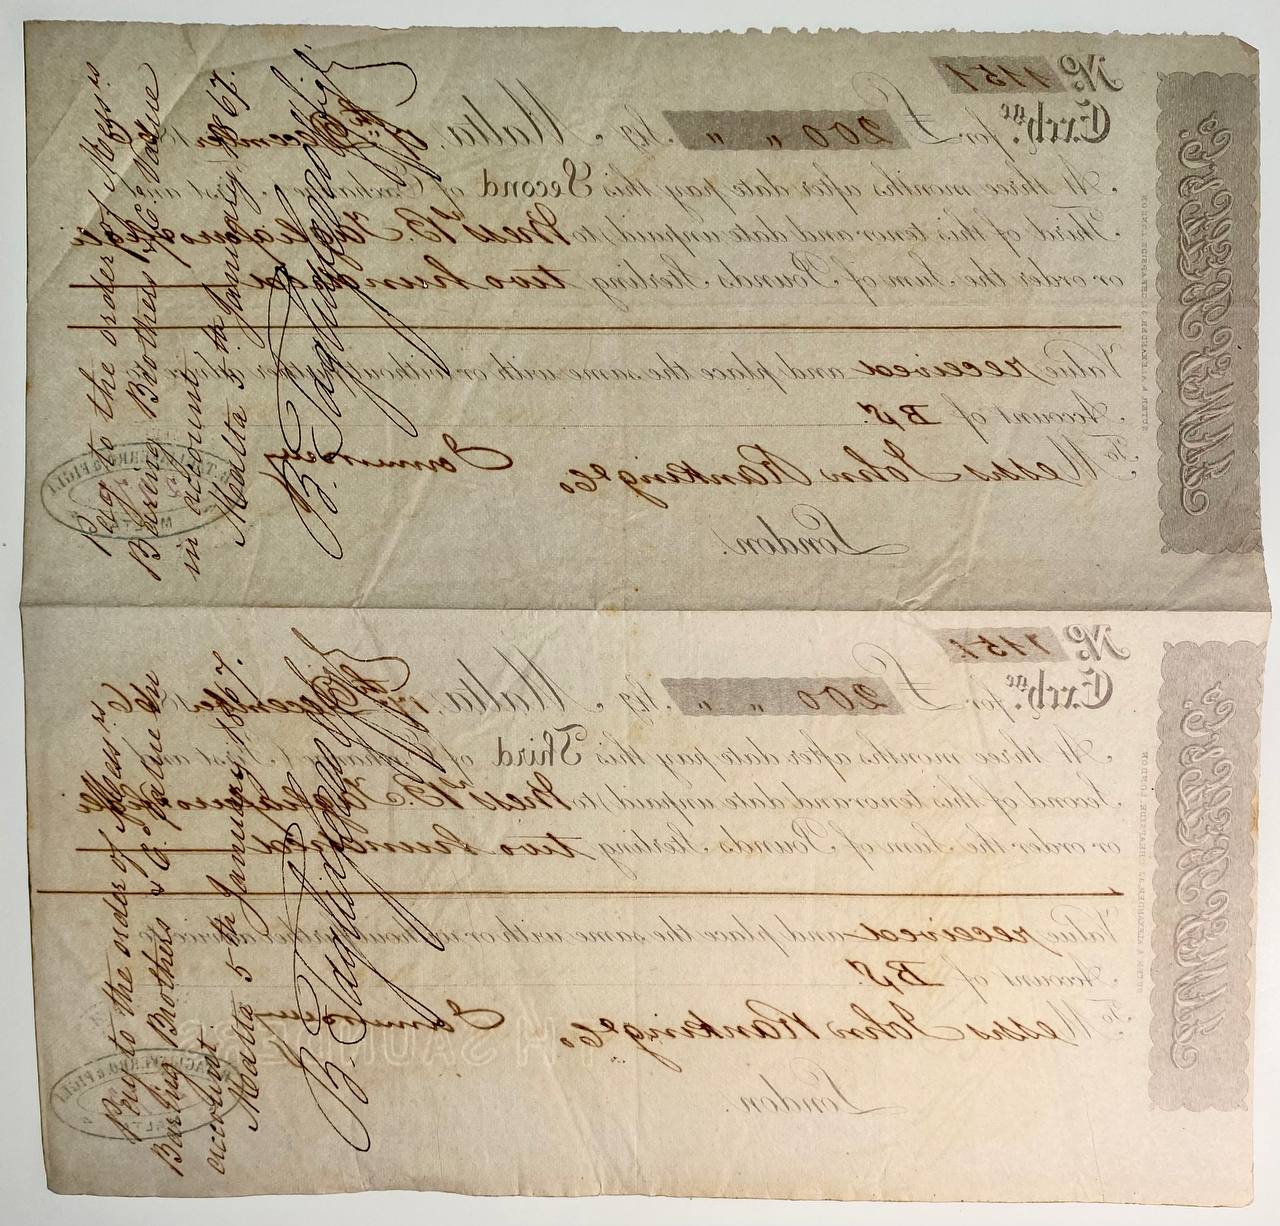 Pay to the order of Mess.rs
Baring Brothers & Co. Value
in account
Malta 5th January 1867.
B. Tagliaferro & Figli
No. 1151
Exch.ge for £ 200 " " Stg. Malta, December
At three months after date pay this Second of Exchange, First and
Third of this tenor and date unpaid, to Mess B. Tagliaferro & Figli
or order the Sum of Pounds Sterling two hundred
Value received and place the same with or without further advice
Account of
To Mess John Ranking & Co.
London.
MALTA
Pay to the order of Mess.rs
Baring Brothers & Co. Value in
account
Malta 5th January 1867.
B. Tagliaferro & Figli
No. 1151
Exch.ge for £ 200 " " Stg. Malta, December
At three months after date pay this Third of Exchange, First and
Second of this tenor and date unpaid, to Mess B. Tagliaferro & Figli
or order the Sum of Pounds Sterling two hundred
Value received and place the same with or without further advice
Account of
To Mess John Ranking & Co.
London.
B. TAGLIAFERRO & FIGLI
MALTA